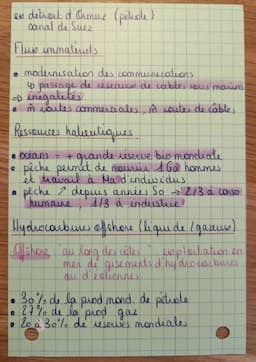 ex détroit d'Ormuz (pétrole)
canal de Suez
Flux immatériels
• modernisation des communications
↳ passage de réseaux de câbles sous marins
⇒ inégalités
• m̂ routes commerciales, m̂ routes de câbles
Ressources halieutiques
• océans → + grande réserve bio mondiale
• pêche permet de nourrir 1 Ga hommes
et travail à Ma d'individus
• pêche ↗ depuis années 50 → 2/3 à conso
humaine, 1/3 à industrie
Hydrocarbures offshore (liquide/gazeux)
Offshore "au long des côtes" exploitation en
mer de gisements d'hydrocarbures
ou d'éoliennes
• 30% de la prod mond. de pétrole
• 27% de la prod gaz
• 20 à 30% de réserves mondiales